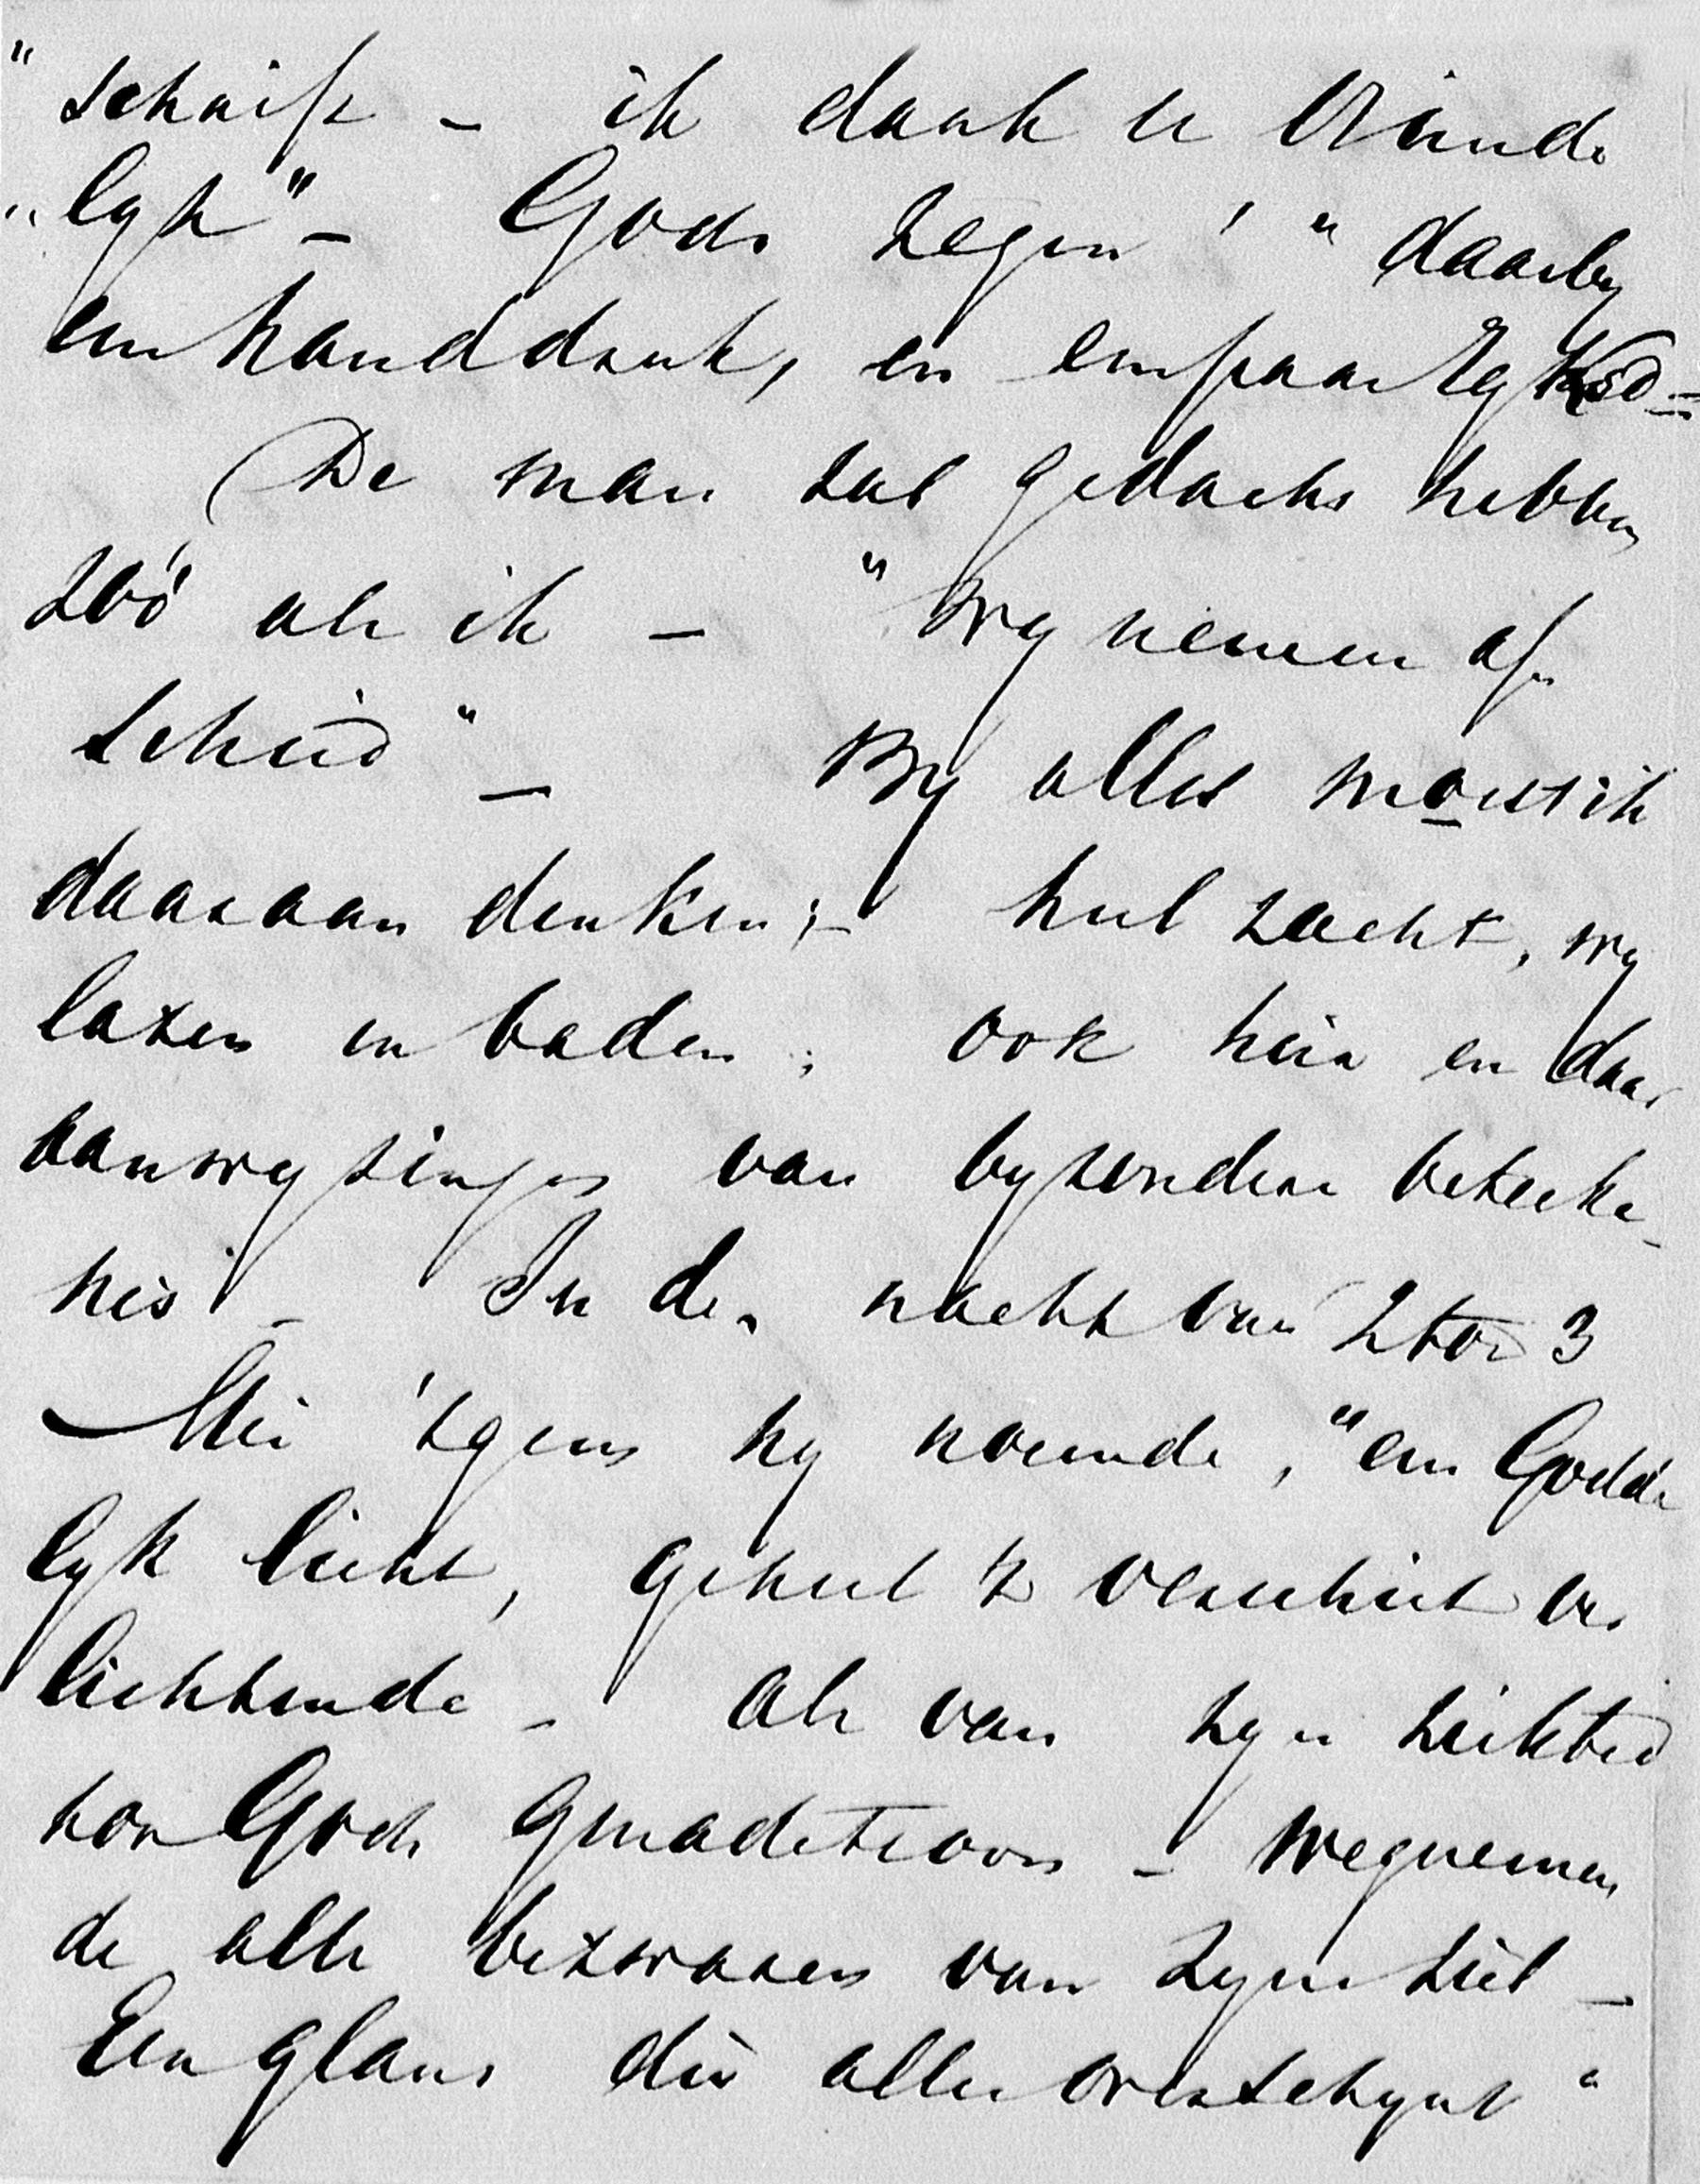 "schrift – ik dank u vriende
"lyk" – Gods zegen!" daarby
een handdruk, en een paar
De man zal gedacht hebben
zóó als ik – "wy nemen af„
scheid" – By alles moest ik
daaraan denken; – heel zacht, wy
lazen en baden; ook hier en daar
aanwyzingen van byzondere beteeke„
nis – In den nacht van 2 tot 3
Mei 't geen hy noemde, "een Godde
lyk licht, geheel 't verschiet ver
lichtende – als van zyn ziekbed
tot Gods genadetroon – wegnemen
de alle bezwaren van zyne ziel –
Een glans die alles overschynt"